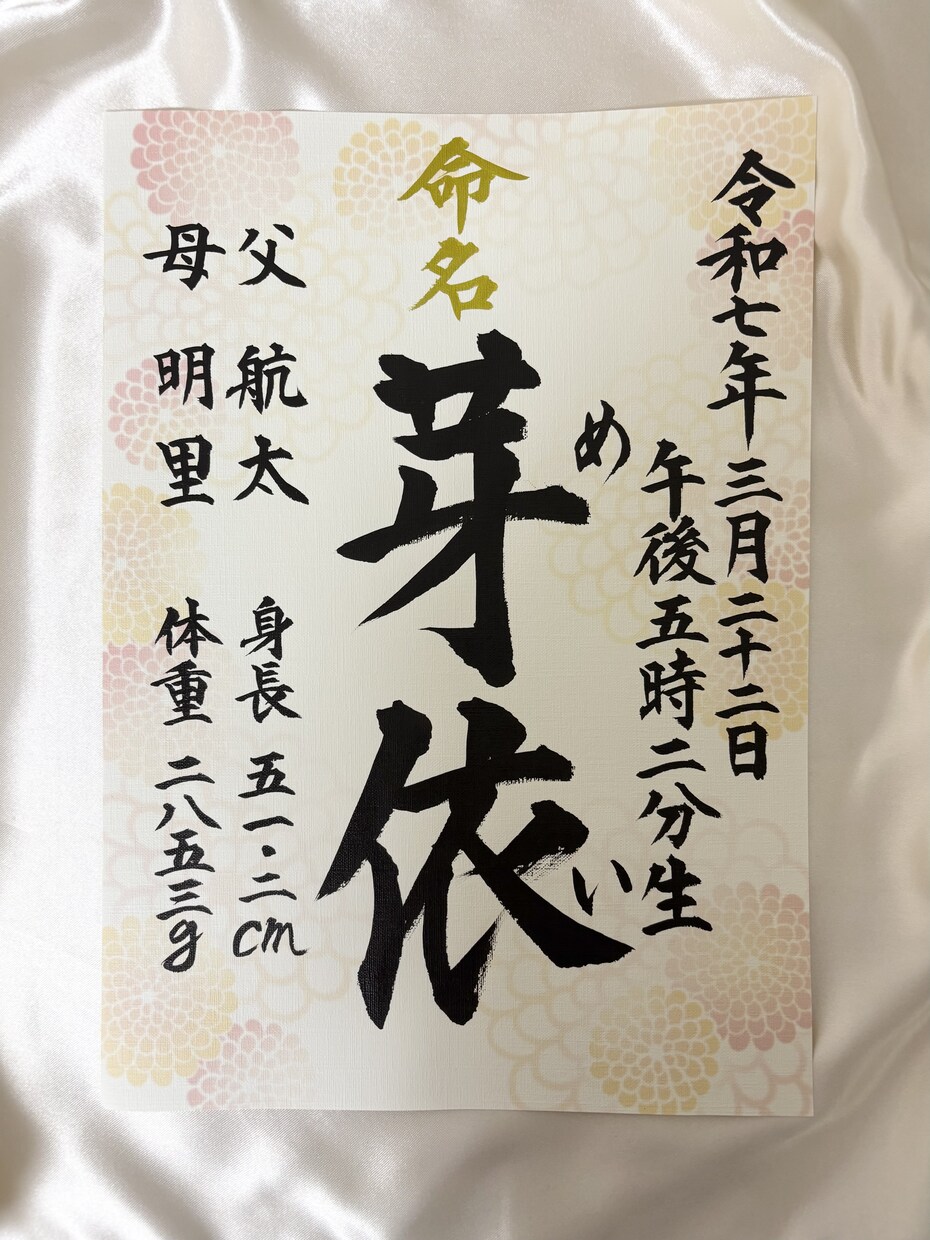 令和七年 三月二十二日
午後五時二分生
命名
芽依
めい
父 航太
身長 五一・二cm
母 明里
体重 二八五三g